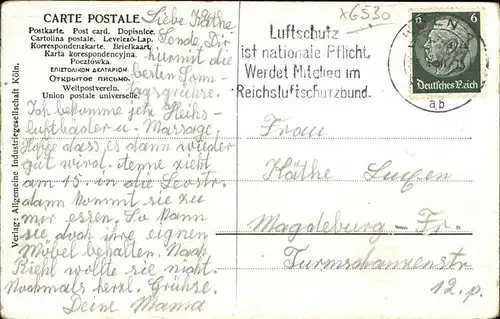 CARTE POSTALE
Postkarte. Post card. Dopisnice.
Cartolina postale. Levelező-Lap.
Korrespondenzkarte. Briefkaart.
Korrespondencyjna karta.
Pocztówka.
ΕΠΙΣΤΟΛΙΚΟΝ ΔΕΛΤΑΡΙΟΝ
Открытое письмо.
Weltpostverein.
Union postale universelle.
Verlag: Allgemeine Industriegesellschaft Köln.
Liebe Käthe
Sende Dir
hiermit die
besten Sonn-
tagsgrüsse.
Ich bekomme jetz Heihs-
luftbäder u. Massage,
Hoffe dass es dann wieder
gut wird. Anne zieht
am 15. in die Leostr.
dann kommt sie zu
mir essen. So kann
sie doch ihre eignen
Möbel behalten. Nach
Riehl wollte sie nicht.
Nochmals herzl. Grühse.
Deine Mama
x6530
Luftschutz
ist nationale Pflicht.
Werdet Mitglied im
Reichsluftschutzbund.
6 6
Deutsches Reich
ab
Frau
Käthe
Magdeburg - Fr.
Turmschanzenstr
12. p.